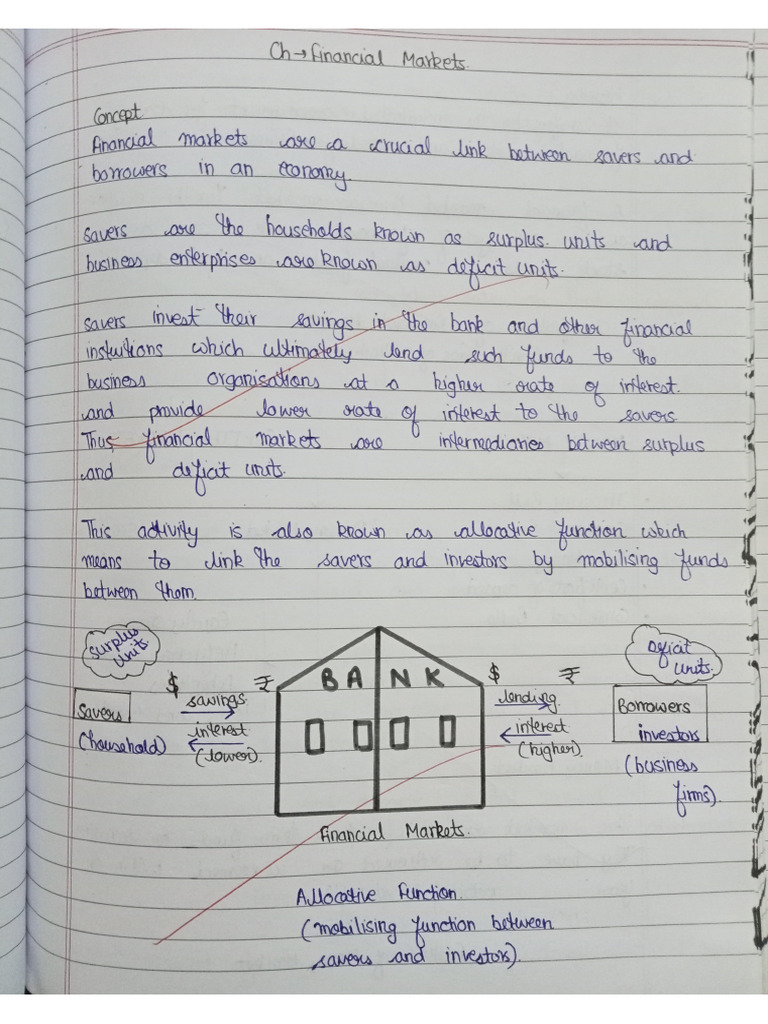 Ch → Financial Markets.
Concept
Financial markets are a crucial link between savers and
borrowers in an economy.
Savers are the households known as surplus units and
business enterprises are known as deficit units.
Savers invest their savings in the bank and other financial
instuitions which ultimately lend such funds to the
business organisations at a higher rate of interest.
and provide lower rate of interest to the savers
Thus financial markets are intermediaries between surplus
and deficit units.
This activity is also known as allocative function which
means to link the savers and investors by mobilising funds
between them.
Surplus units
$ ₹
savings
Savers
(household)
interest
(lower).
BANK
Financial Markets.
$ ₹
lending
interest
(higher)
Deficit units.
Borrowers
investors
(business
firms).
Allocative Function.
(mobilising function between
savers and investors).